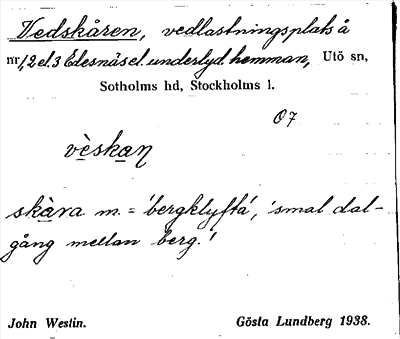 Vedskåren, vedlastningsplats å
nr 1, 2 el. 3 Edesnäs el. underlyd. hemman, Utö sn,
Sotholms hd, Stockholms l.
07
vèskaṇ
skàra m. = 'bergklyfta', 'smal dal-
gång mellan berg.'
John Westin. Gösta Lundberg 1938.